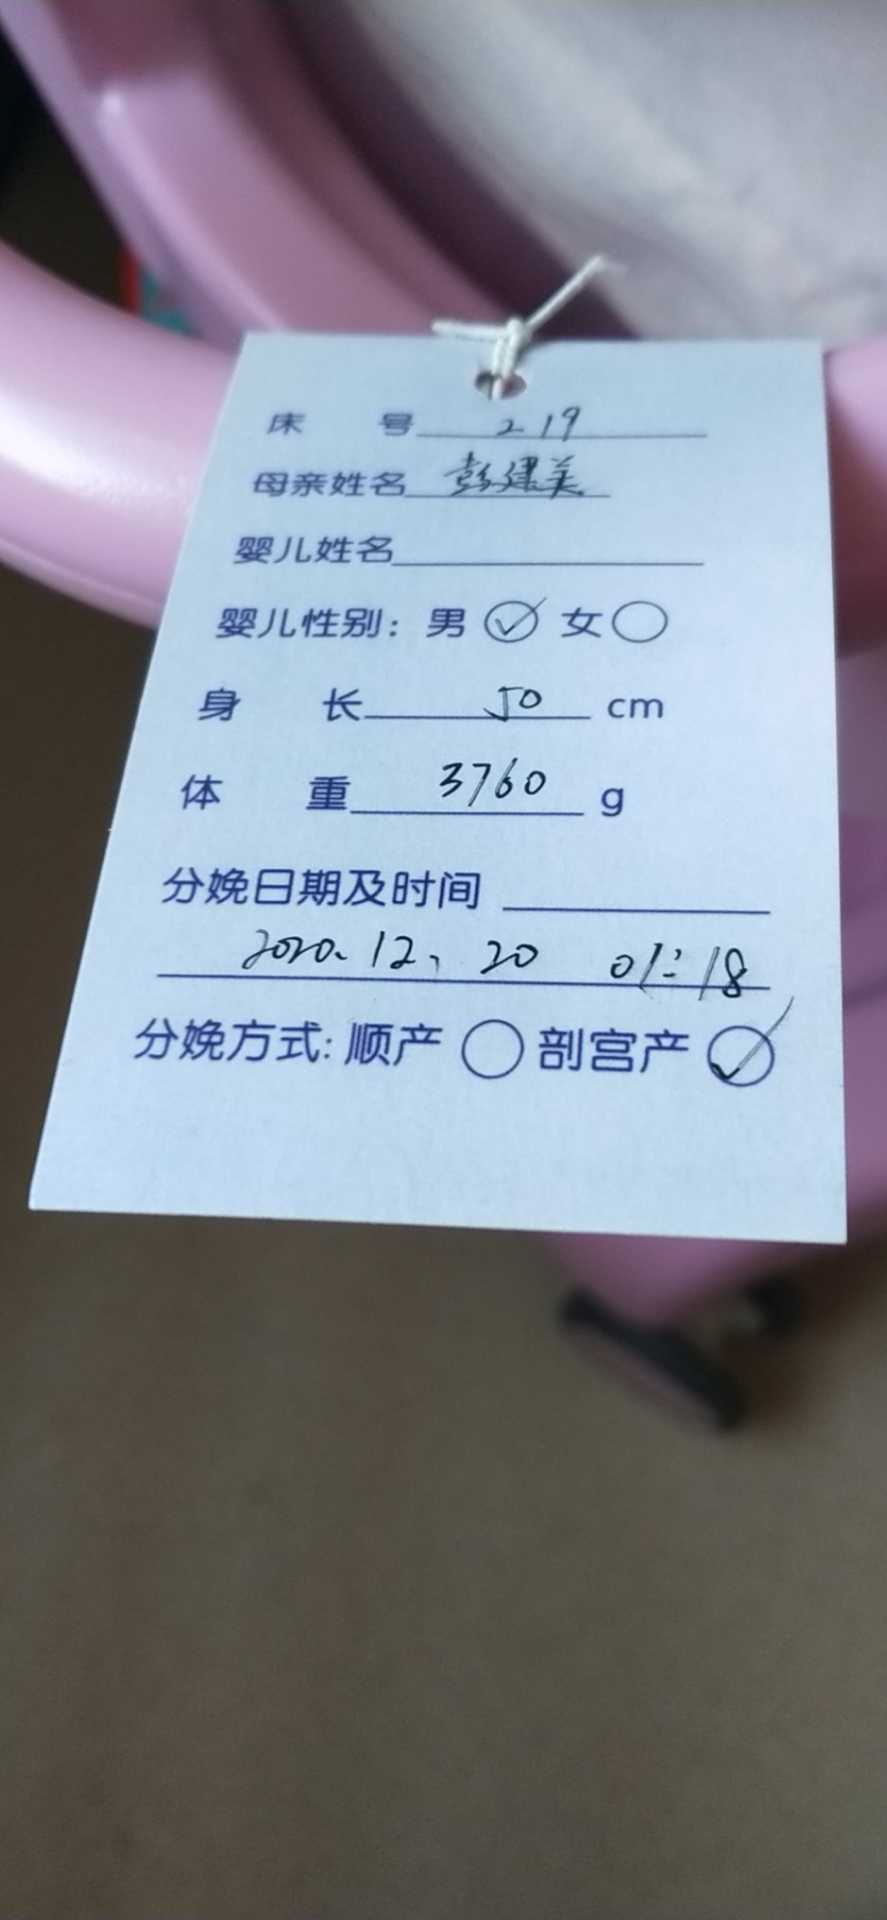 床 号 219
母亲姓名 彭建美
婴儿姓名
婴儿性别: 男 ✓ 女
身 长 50 cm
体 重 3760 g
分娩日期及时间
2020、12、20 01:18
分娩方式: 顺产 剖宫产 ✓